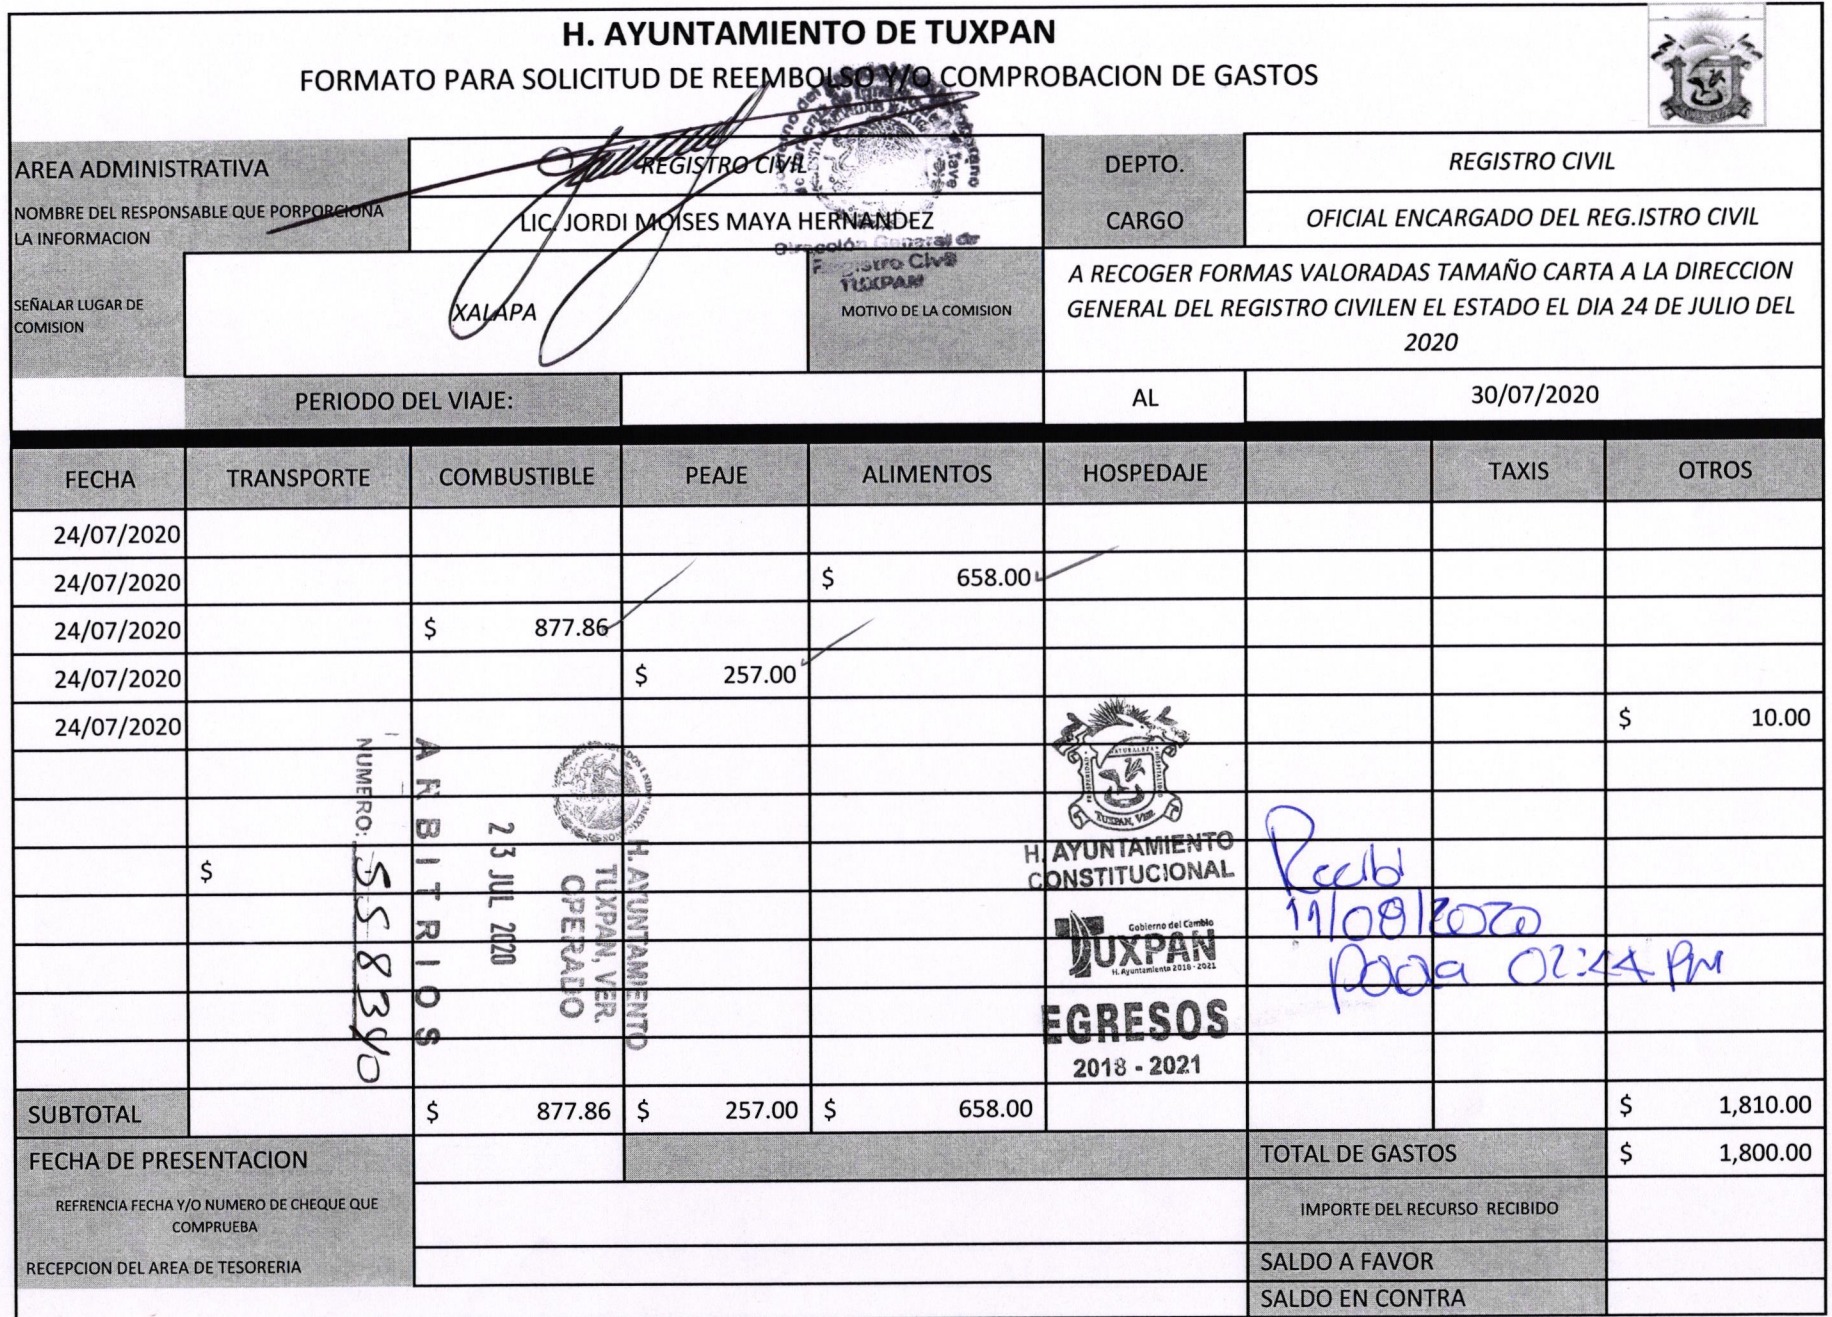 H. AYUNTAMIENTO DE TUXPAN
FORMATO PARA SOLICITUD DE REEMBOLSO Y/O COMPROBACION DE GASTOS
AREA ADMINISTRATIVA REGISTRO CIVIL DEPTO. REGISTRO CIVIL
NOMBRE DEL RESPONSABLE QUE PORPORCIONA
LA INFORMACION
LIC. JORDI MOISES MAYA HERNANDEZ CARGO OFICIAL ENCARGADO DEL REG.ISTRO CIVIL
Dirección General de
Registro Civil
TUXPAN
SEÑALAR LUGAR DE
COMISION
XALAPA
MOTIVO DE LA COMISION
A RECOGER FORMAS VALORADAS TAMAÑO CARTA A LA DIRECCION
GENERAL DEL REGISTRO CIVILEN EL ESTADO EL DIA 24 DE JULIO DEL
2020
PERIODO DEL VIAJE: AL 30/07/2020
FECHA TRANSPORTE COMBUSTIBLE PEAJE ALIMENTOS HOSPEDAJE TAXIS OTROS
24/07/2020
24/07/2020 $ 658.00
24/07/2020 $ 877.86
24/07/2020 $ 257.00
24/07/2020 $ 10.00
$
NUMERO: 558340
ARBITRIOS
23 JUL 2020
H. AYUNTAMIENTO
TUXPAN, VER.
OPERADO
TUXPAN, VER.
H. AYUNTAMIENTO
CONSTITUCIONAL
Gobierno del Cambio
TUXPAN
H. Ayuntamiento 2018 - 2021
EGRESOS
2018 - 2021
Recibi
11/08/2020
02:44 PM
SUBTOTAL $ 877.86 $ 257.00 $ 658.00 $ 1,810.00
FECHA DE PRESENTACION TOTAL DE GASTOS $ 1,800.00
REFRENCIA FECHA Y/O NUMERO DE CHEQUE QUE
COMPRUEBA
IMPORTE DEL RECURSO RECIBIDO
RECEPCION DEL AREA DE TESORERIA SALDO A FAVOR
SALDO EN CONTRA